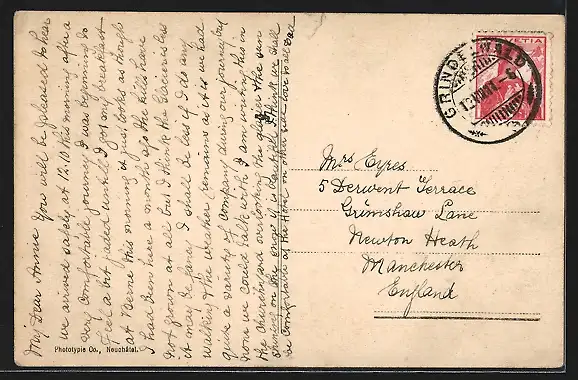 My Dear Annie You will be pleased to hear
we arrived safely at 12.10 this morning after a
very comfortable journey I was beginning to
feel a bit faded until I got my breakfast
at Berne this morning it just looks as though
I had been here a month ago the hills have
not grown at all but I think the Glacier is less
it may be fancy I shall be less if I do any
walking & the weather remains as it is we had
quite a variety of company during our journey but
none we could talk with I am writing this in
the Churchyard overlooking the glacier & the sun
shining on the snow it is beautiful I think we shall
be comfortable at the Hotel on other side love to all Dad
Phototypie Co., Neuchâtel.
HELVETIA
GRINDELWALD
Mrs Eyres
5 Derwent Terrace
Grimshaw Lane
Newton Heath
Manchester
England